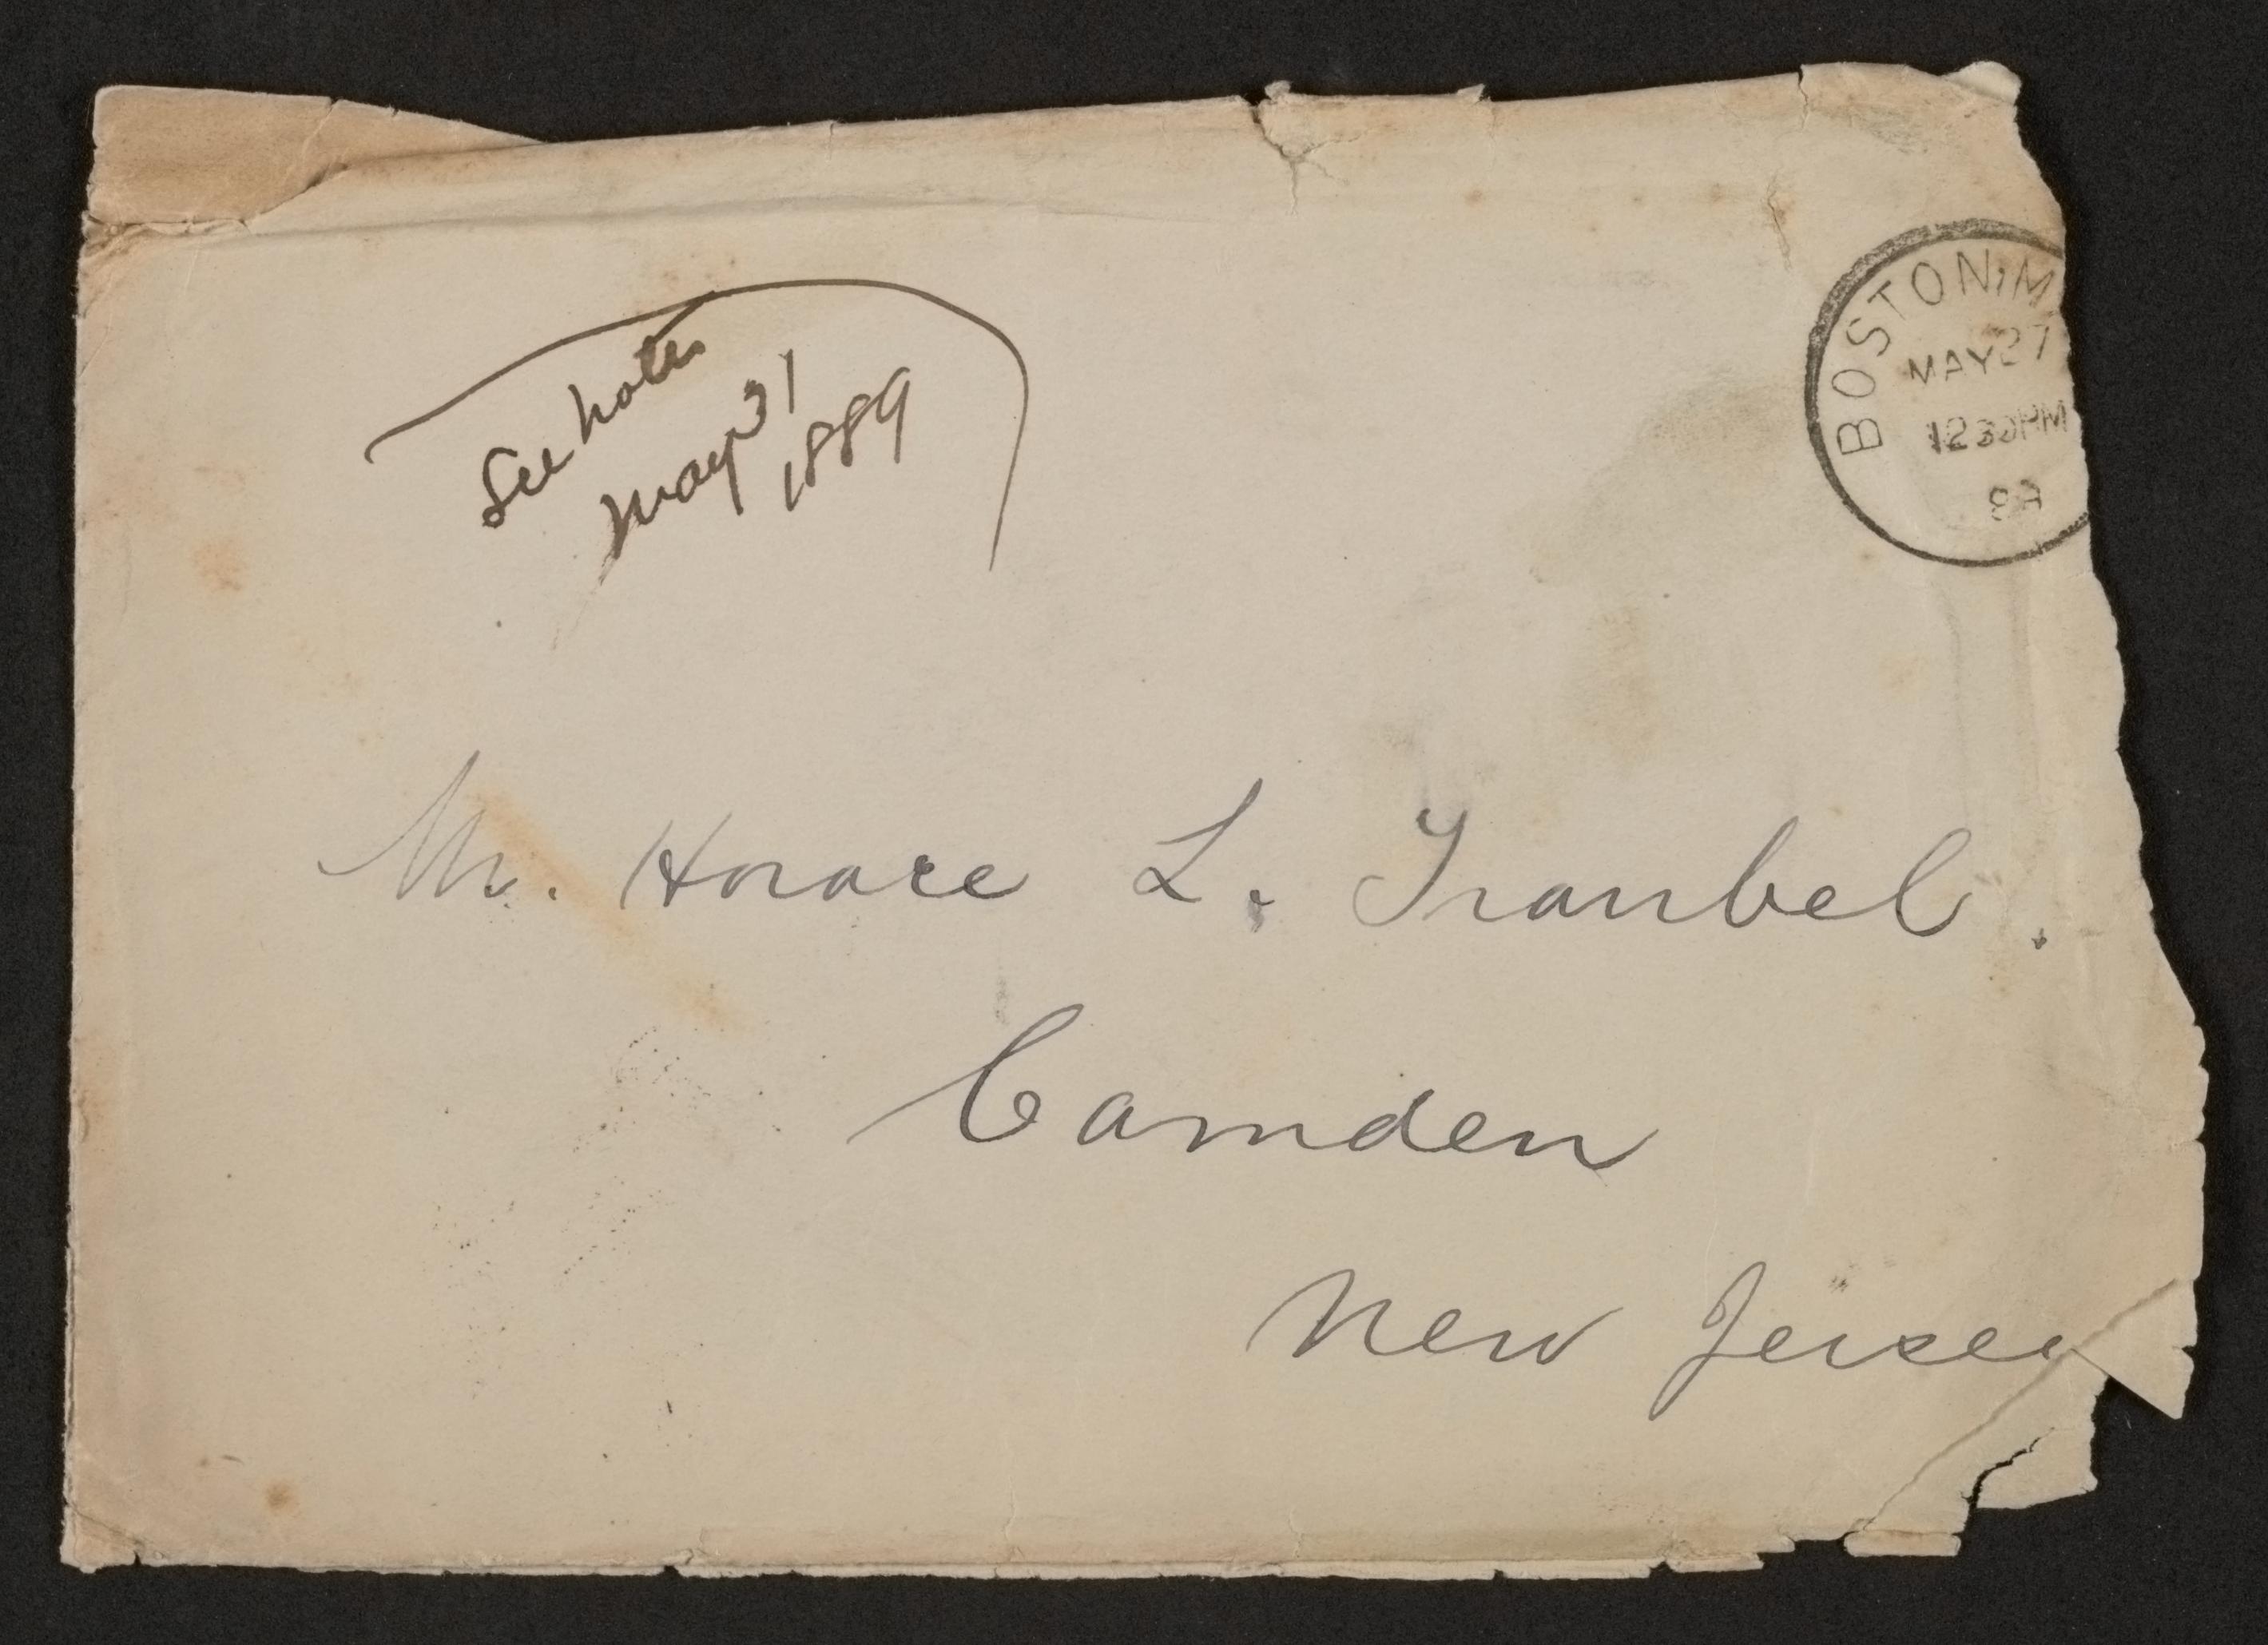 See notes
May 31
1889
BOSTON, M
MAY 27
12 30 PM
89
Mr. Horace L. Traubel.
Camden
New Jersey